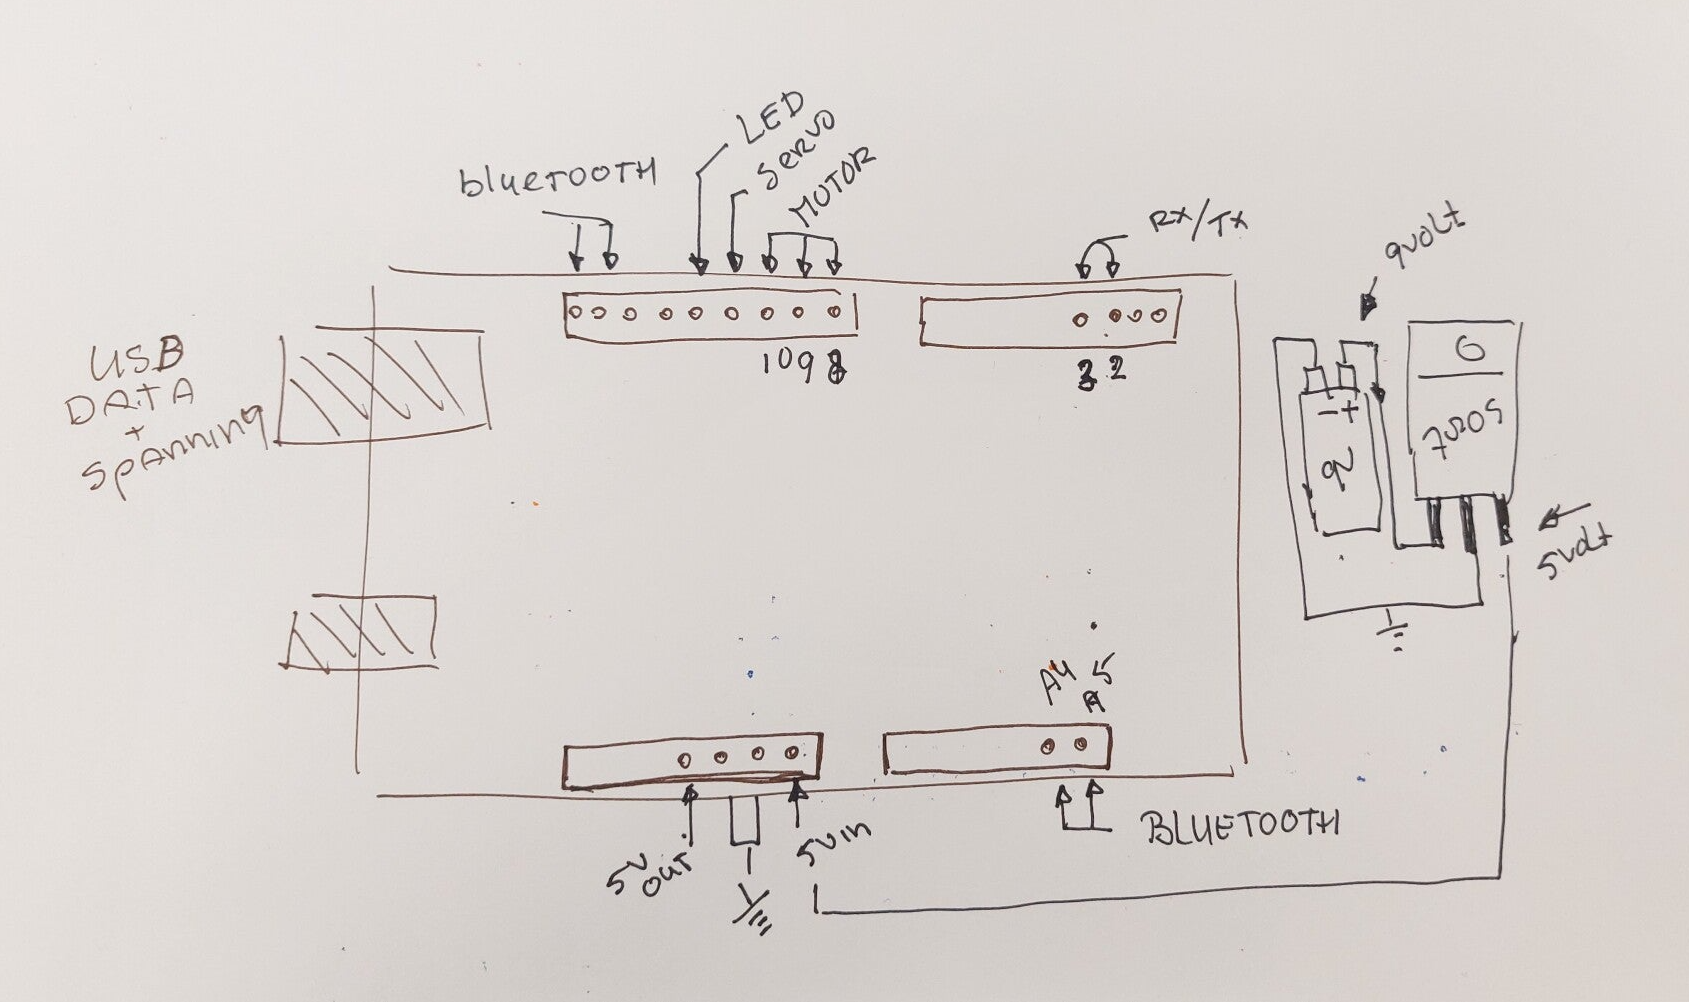 LED
Servo
MOTOR
bluetooth
RX/TX
9volt
10 9 8
3 2
USB
DATA
+
spanning
- +
9v
5volt
A4
A5
5v
out
5vin
BLUETOOTH